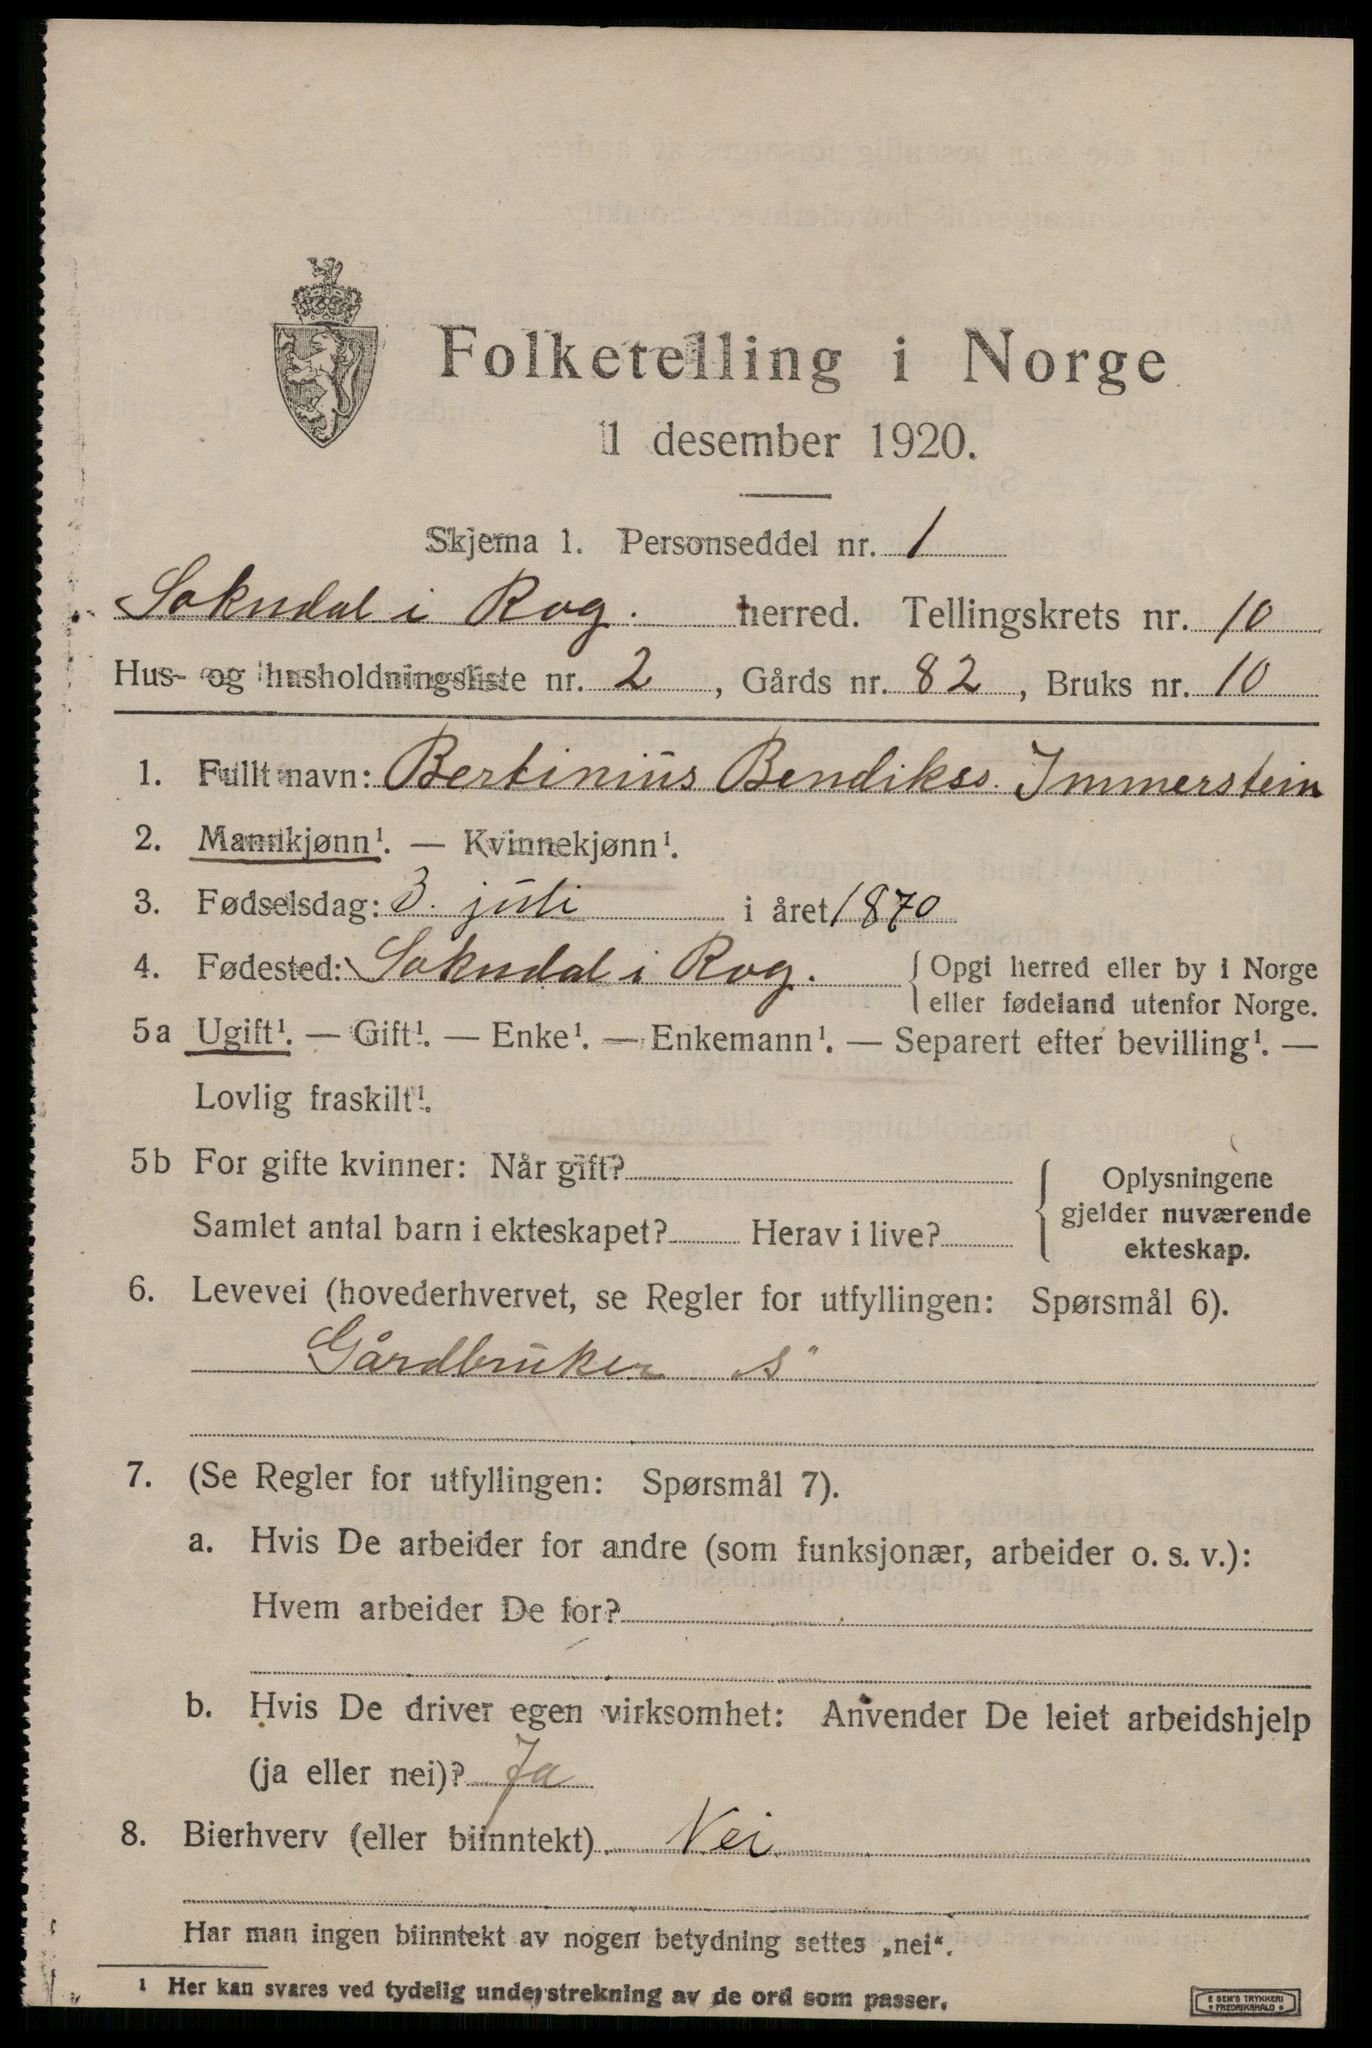 Folketelling i Norge
1 desember 1920.
Skjema 1. Personseddel nr. 1
Sokndal i Rog. herred. Tellingskrets nr. 10
Hus- og husholdningsliste nr. 2, Gårds nr. 82, Bruks nr. 10
1. Fullt navn: Bertinius Bendikss. Immerstein
2. Mannkjønn¹. — Kvinnekjønn¹.
3. Fødselsdag: 3. juli i året 1870
4. Fødested: Sokndal i Rog. { Opgi herred eller by i Norge
eller fødeland utenfor Norge.
5a Ugift¹. — Gift¹. — Enke¹. — Enkemann¹. — Separert efter bevilling¹. —
Lovlig fraskilt¹.
5b For gifte kvinner: Når gift?
Samlet antal barn i ekteskapet? Herav i live?
{ Oplysningene
gjelder nuværende
ekteskap.
6. Levevei (hovederhvervet, se Regler for utfyllingen: Spørsmål 6).
Gårdbruker "s"
7. (Se Regler for utfyllingen: Spørsmål 7).
a. Hvis De arbeider for andre (som funksjonær, arbeider o. s. v.):
Hvem arbeider De for?
b. Hvis De driver egen virksomhet: Anvender De leiet arbeidshjelp
(ja eller nei)? Ja
8. Bierhverv (eller biinntekt) Nei
Har man ingen biinntekt av nogen betydning settes „nei“.
¹ Her kan svares ved tydelig understrekning av de ord som passer.
E SEM'S TRYKKERI
FREDRIKSHALD